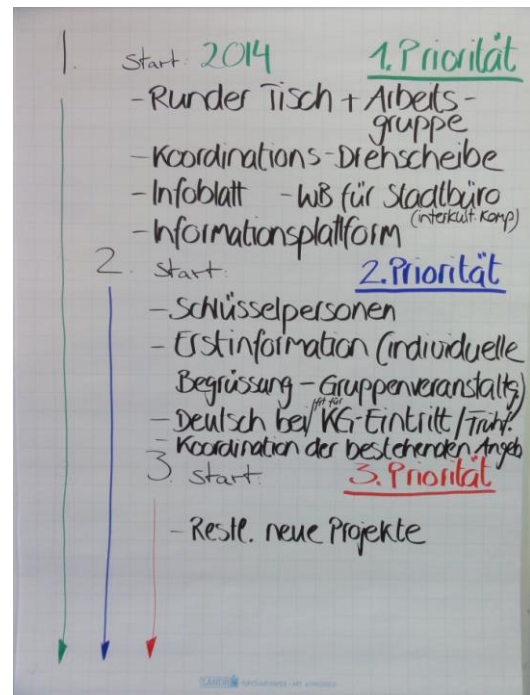 1. Start: 2014 1. Priorität
- Runder Tisch + Arbeits-
gruppe
- Koordinations-Drehscheibe
- Infoblatt - WB für Stadtbüro
(interkult. Komp)
- Informationsplattform
2. Start: 2. Priorität
- Schlüsselpersonen
- Erstinformation (individuelle
Begrüssung - Gruppenveranstaltg)
- Deutsch bei/fit für KG-Eintritt/Frühf.
- Koordination der bestehenden Angeb
3. Start: 3. Priorität
- Restl. neue Projekte